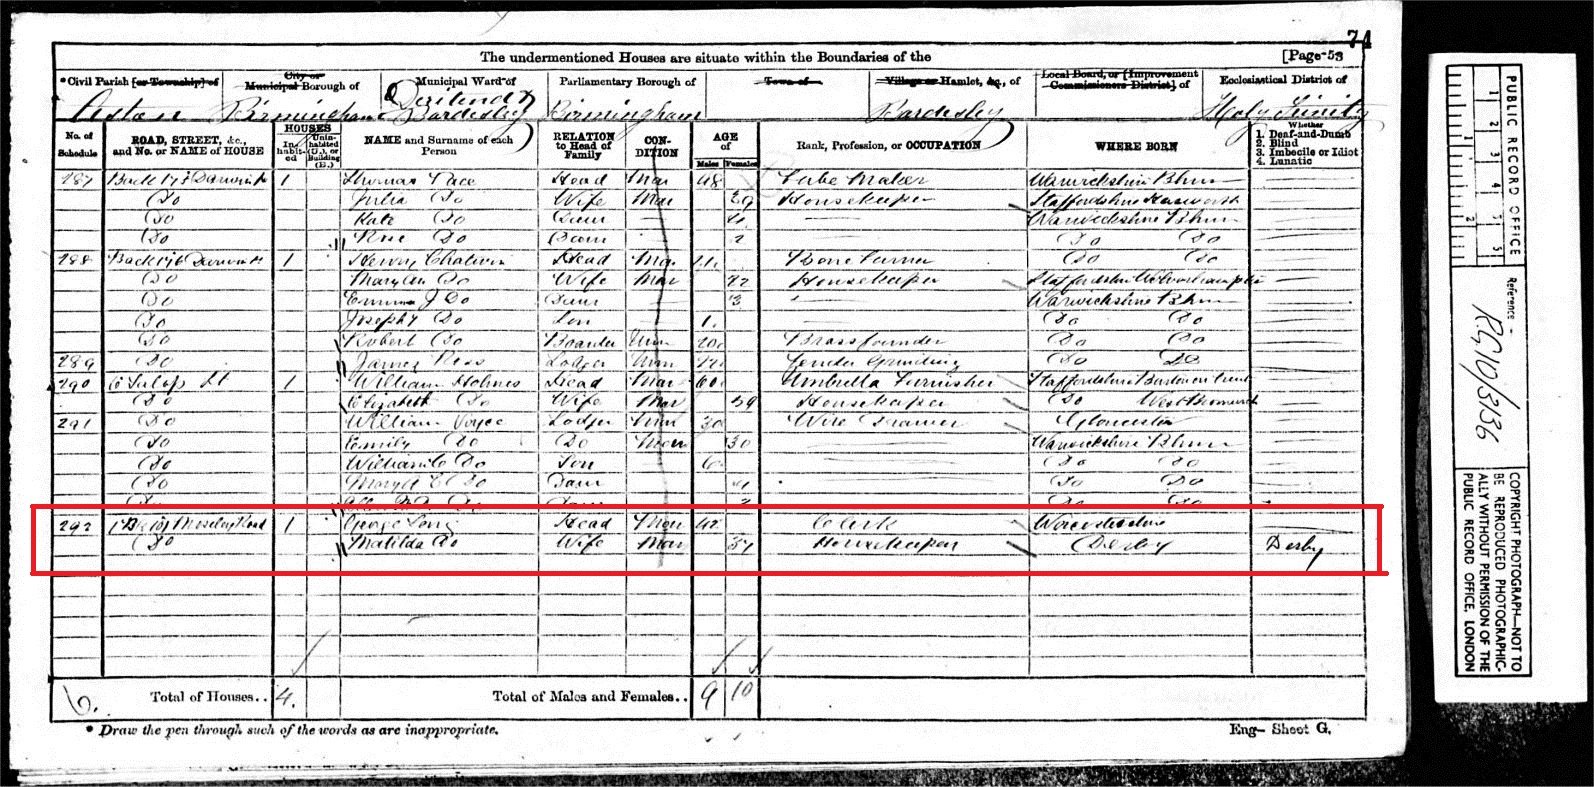 74
The undermentioned Houses are situate within the Boundaries of the [Page 53
*Civil Parish [or Township] of City or Municipal Borough of Municipal Ward of Parliamentary Borough of Town of Village or Hamlet, &c., of Local Board, or [Improvement Commissioners District] of Ecclesiastical District of
Aston Birmingham Deritend & Bordesley Birmingham Bordesley Holy Trinity
No. of Schedule ROAD, STREET, &c., and No. or NAME of HOUSE HOUSES Inhabited Uninhabited (U.), or Building (B.) NAME and Surname of each Person RELATION to Head of Family CONDITION AGE of Males Females Rank, Profession, or OCCUPATION WHERE BORN Whether 1. Deaf-and-Dumb 2. Blind 3. Imbecile or Idiot 4. Lunatic
287 Back 173 Darwin St 1 Thomas Pace Head Mar 48 Tube Maker Warwickshire Bhm
Do Julia Do Wife Mar 29 Housekeeper Staffordshire
Do Kate Do Daur 4 Warwickshire Bhm
Do Rose Do Daur 2 Do Do
288 Back 176 Darwin St 1 Henry Chatwin Head Mar Bone Turner Do Do
Do Mary Ann Do Wife Mar 22 Housekeeper Staffordshire Wolverhampton
Do Emma J Do Daur 3 Warwickshire Bhm
Do Joseph Do Son 1 Do Do
Do Robert Do Boarder Unm 20 Brassfounder Do Do
289 Do James Lodger Unm Do Do
290 6 Salop St 1 William Holmes Head Mar 60 Umbrella Furnisher Staffordshire Burton on Trent
Do Elizabeth Do Wife Mar 59 Housekeeper Do West Bromwich
291 Do William Voyce Lodger Unm 30 Wire Drawer Gloucester
Do Emily Do Do 30 Warwickshire Bhm
Do William Do Son 6 Do Do
Do Mary E Do Daur 4 Do Do
Do Do Daur 2 Do Do
292 Moseley Road 1 George Long Head Mar 42 Clerk Worcestershire
Do Matilda Do Wife Mar 37 Housekeeper Derby Derby
6. Total of Houses.. 4. Total of Males and Females.. 9 10
* Draw the pen through such of the words as are inappropriate.
Eng- Sheet G.
PUBLIC RECORD OFFICE
1 2 3 4 5
1 2
Reference :-
RG10/3136
COPYRIGHT PHOTOGRAPH—NOT TO
BE REPRODUCED PHOTOGRAPHIC-
ALLY WITHOUT PERMISSION OF THE
PUBLIC RECORD OFFICE, LONDON